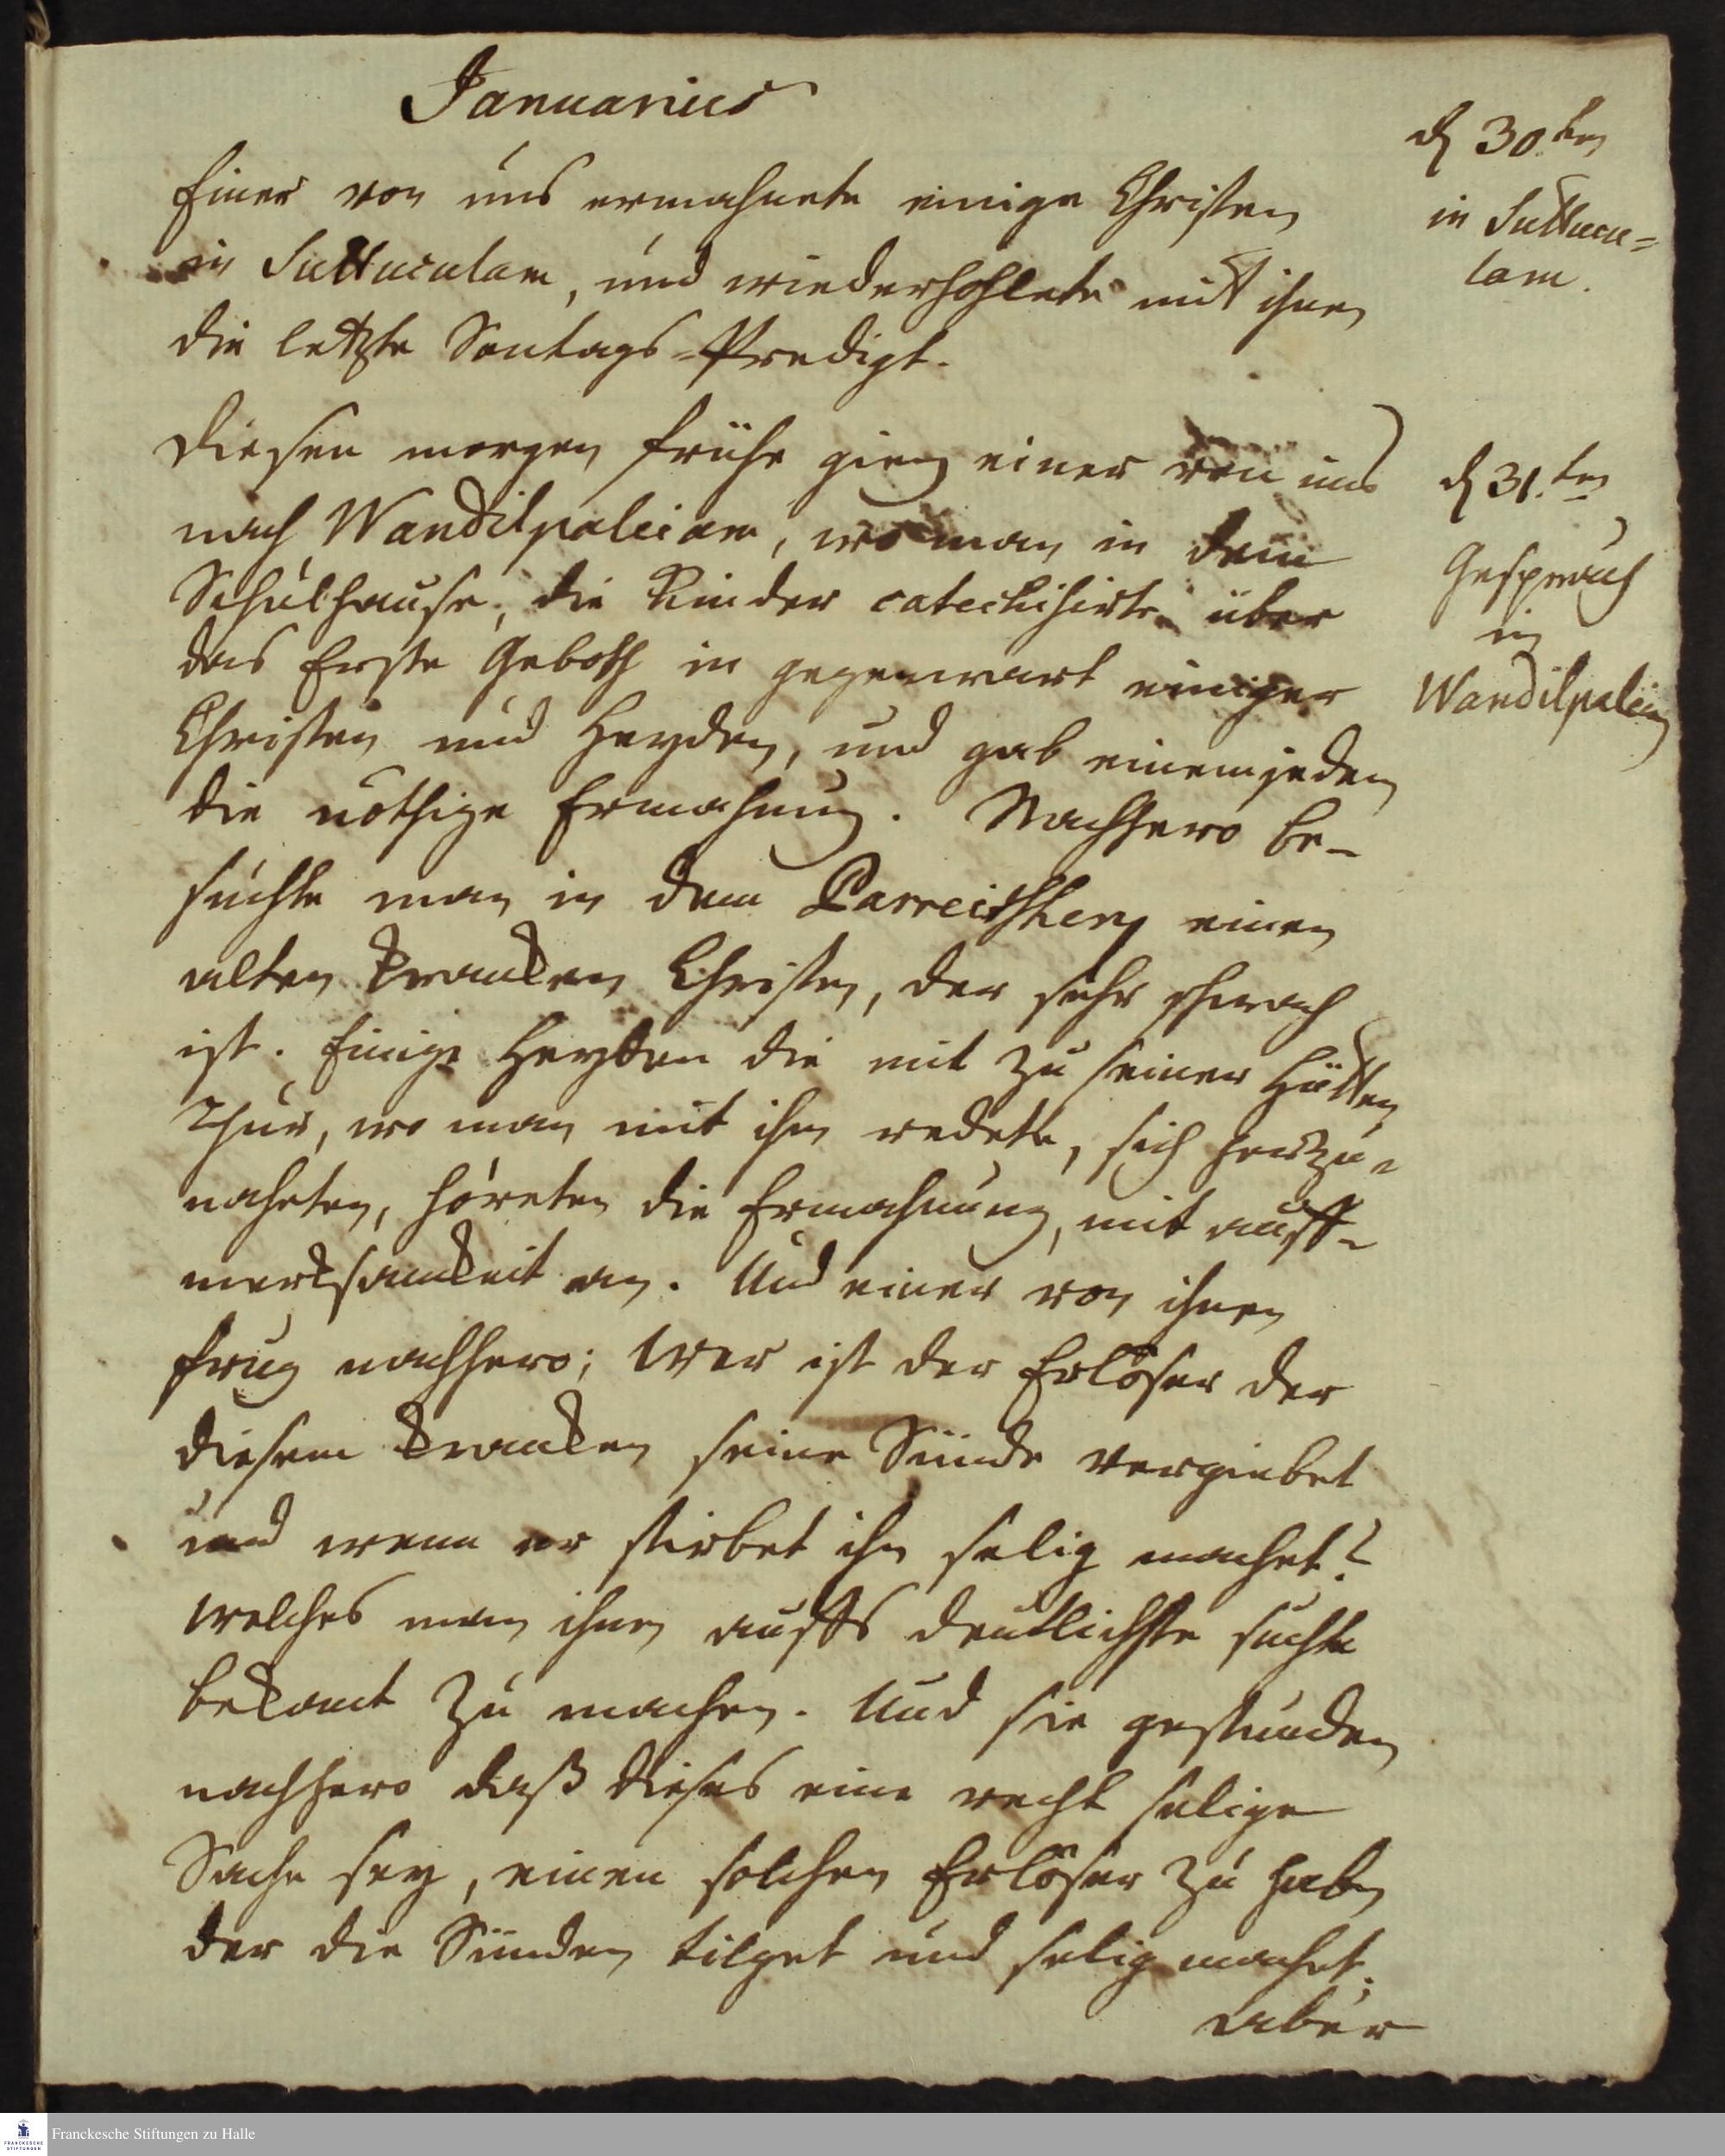 Januarius
d 30.ten
in Suttucu=
lam.
Einer von uns ermahnete einige Christen
in Suttuculam, und wiederhohlete mit ihnen
die letzte Sontags-Predigt.
d 31.ten
Gespräch
in
Wandilpaleiam
Diesen morgen frühe gieng einer von uns
nach Wandilpaleiam, wo man in dem
Schulhause, die Kinder catechisirte über
das Erste Geboth in gegenwart einiger
Christen und Heyden, und gab einem jeden
die nöthige Ermahnung. Nachhero be-
suchte man in dem Parreitscheri einen
alten krancken Christen, der sehr schwach
ist. Einige Heyden die mit zu seiner Hütten
Thür, wo man mit ihm redete, sich herzu-
naheten, höreten die Ermahnung, mit auff-
mercksamkeit an. Und einer von ihnen
frug nachhero; Wer ist der Erlöser der
diesem krancken seine Sünde vergiebet
und wenn er stirbet ihn selig machet?
welches man ihnen auffs deutlichste suchte
bekant zu machen. Und sie gestunden
nachhero daß dieses eine recht selige
Sache sey, einen solchen Erlöser zu haben
der die Sünden tilget und selig machet;
aber
Franckesche Stiftungen zu Halle